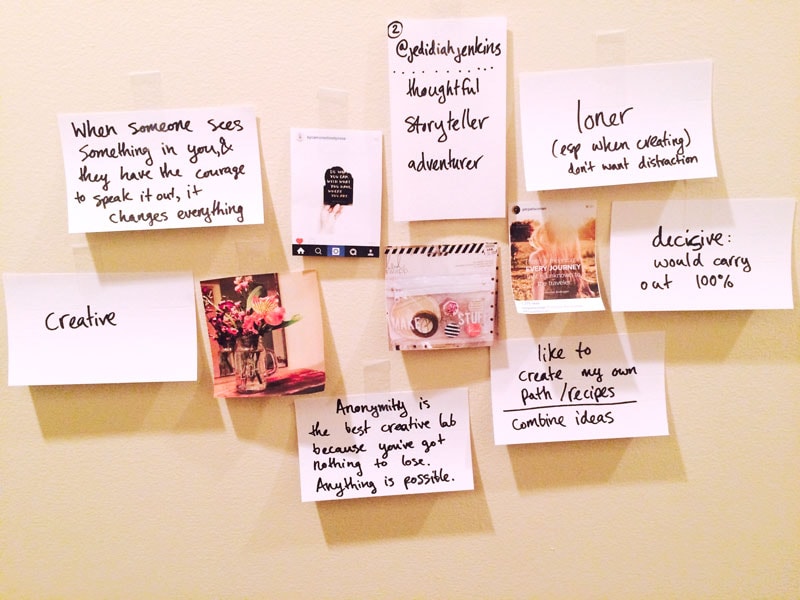 When someone sees
something in you, &
they have the courage
to speak it out, it
changes everything
2
@jedidiahjenkins
thoughtful
storyteller
adventurer
loner
(esp when creating)
don't want distraction
DO WHAT
YOU CAN
WITH WHAT
YOU HAVE,
WHERE
YOU ARE.
EVERY JOURNEY
the traveler.
decisive:
would carry
out 100%
creative
MAKE
STUFF
like to
create my own
path/recipes
combine ideas
Anonymity is
the best creative lab
because you've got
nothing to lose.
Anything is possible.